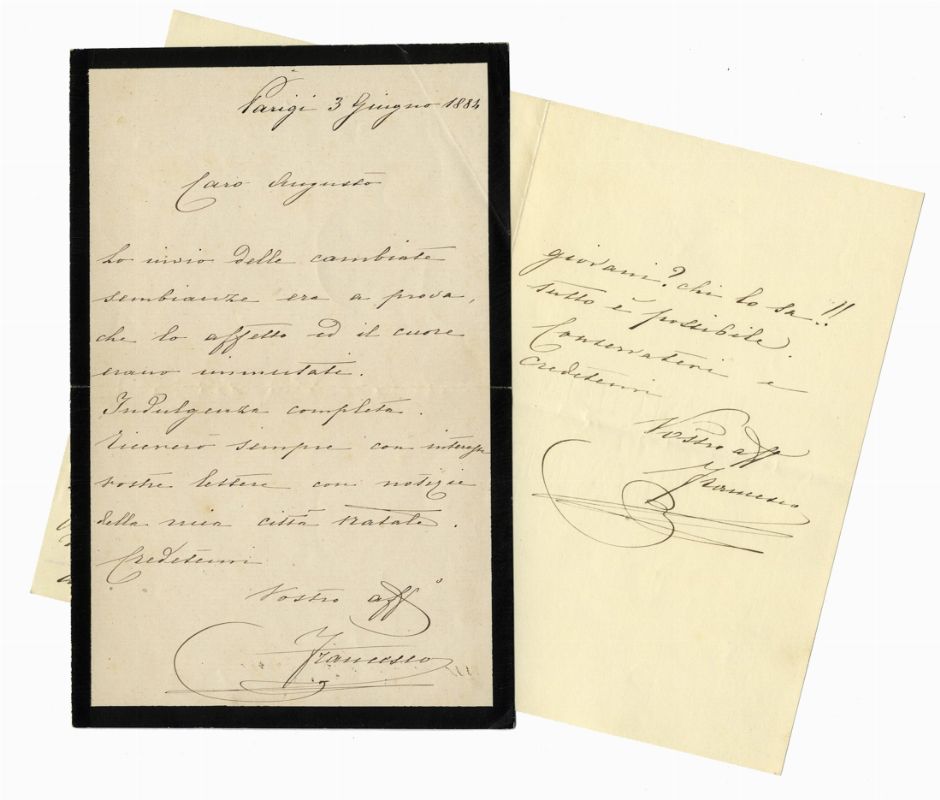 Parigi 3 Giugno 1884
Caro Augusto
Lo invio delle cambiate
sembianze era a prova,
che lo affetto ed il cuore
erano immutati.
Indulgenza completa.
Riceverò sempre con interesse
vostre lettere con notizie
della mia città natale.
Credetemi
Vostro affo
Francesco
giovani? chi lo sa!!
tutto è possibile.
Conservatevi e
credetemi
Vostro aff
Francesco